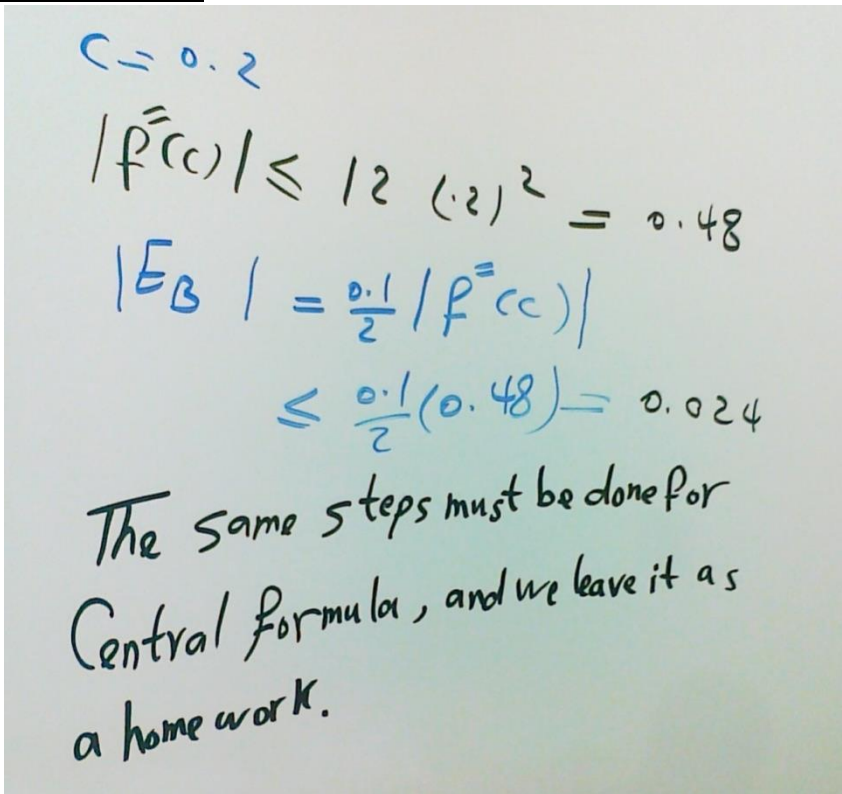 C = 0.2
|f″(c)| ≤ 12 (.2)² = 0.48
|E_B| = 0.1/2 |f″(c)|
≤ 0.1/2 (0.48) = 0.024
The same steps must be done for
Central formula, and we leave it as
a home work.